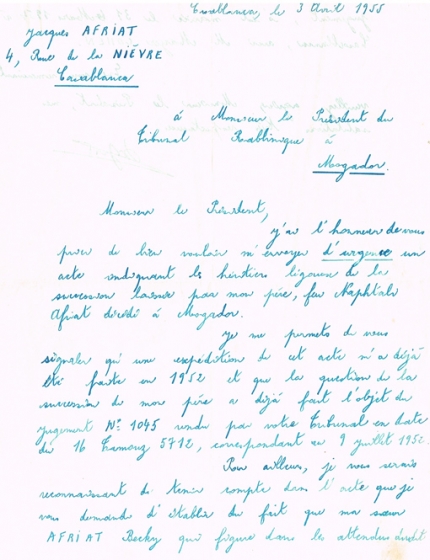 Casablanca, le 3 Avril 1955
Jacques AFRIAT
4, Rue de la NIÈVRE
Casablanca
à Monsieur le Président du
Tribunal Rabbinique à
Mogador.
Monsieur le Président,
J'ai l'honneur de vous
prier de bien vouloir m'envoyer d'urgence un
acte indiquant les héritiers de la
succession laissée par mon père, feu Naphtali
Afriat décédé à Mogador.
Je me permets de vous
signaler qu'une expédition de cet acte m'a déjà
été faite en 1952 et que la question de la
succession de mon père a déjà fait l'objet du
jugement N° 1045 rendu par votre Tribunal en date
du 16 Tamouz 5712, correspondant au 9 juillet 1952.
Par ailleurs, je vous serais
reconnaissant de tenir compte dans l'acte que je
vous demande d'établir du fait que ma sœur
AFRIAT Becky qui figure dans les attendus dudit